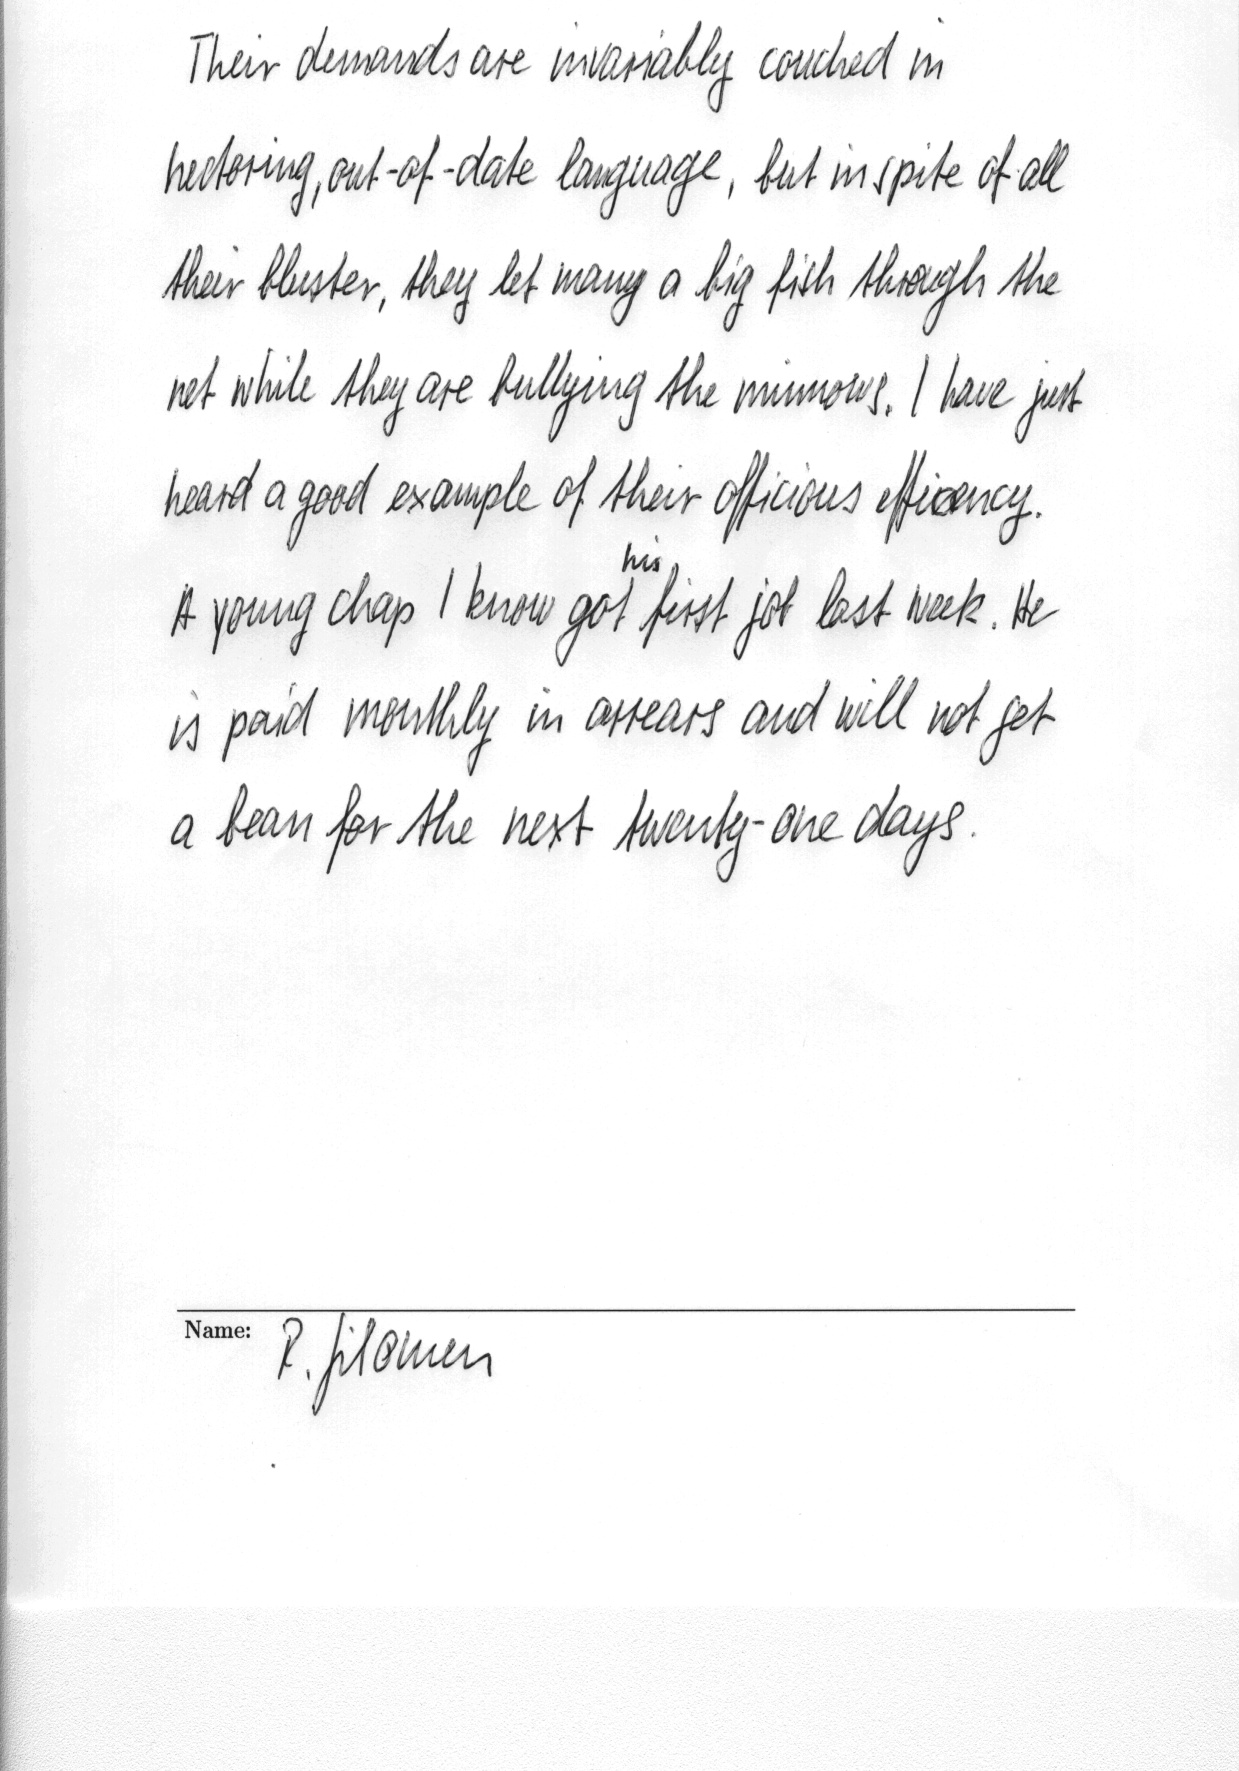 Their demands are invariably couched in
hectoring, out-of-date language, but in spite of all
their bluster, they let many a big fish through the
net while they are bullying the minnows. I have just
heard a good example of their officious efficency.
A young chap I know got his first job last week. He
is paid monthly in arrears and will not get
a bean for the next twenty-one days.
Name: R.